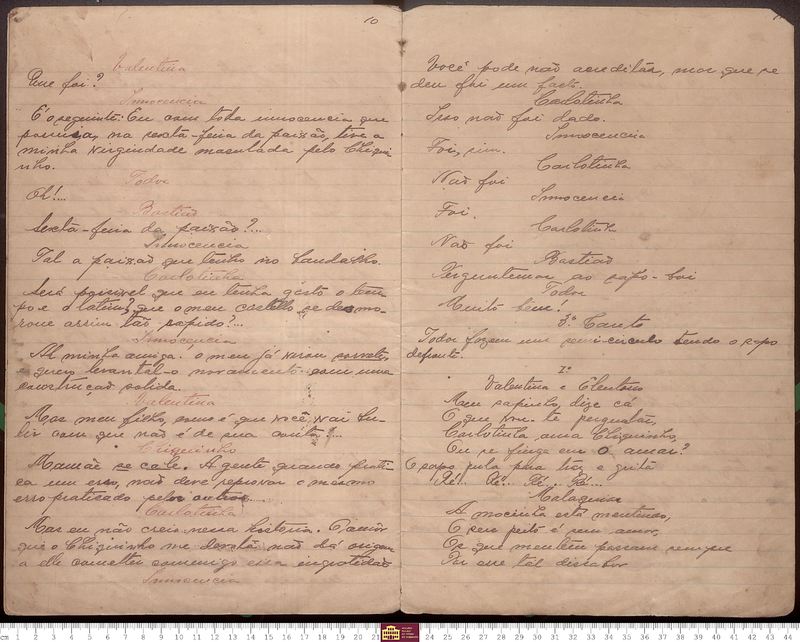 10
Valentina
Que foi?
Innocencia
É o seguinte: Eu com toda innocencia que
possuia, na sexta-feira da paixão, tive a
minha virgindade maculada pelo Chiqui
nho.
Todos
Oh!...
Bastião
Sexta-feira da paixão?...
Innocencia
Tal a paixão que tenho no
Carlotinha
Será possivel que eu tenha gasto o tem
po e o latim? que o meu castello se desmo-
rone assim tão rapido?...
Innocencia
Ah minha amiga! o meu já
quero levantal-o novamente com uma
construcção solida.
Valentina
Mas meu filho, como é que você vai
com que não é de sua
Chiquinho
Mamãe se cale. A gente quando prati
ca um erro, não deve reprovar o mesmo
erro praticado pelos outros....
Carlotinha
Mas eu não creio nessa historia. O amor
que o Chiquinho me não dá origem
a elle cometter commigo essa ingratidão
Innocencia
Você pode não acreditar, mas que se
deu foi um facto.
Carlotinha
Isso não foi dado.
Innocencia
Foi, sim.
Carlotinha
Não foi
Innocencia
Foi.
Carlotinha
Não foi
Bastião
Perguntemos ao sapo-boi
Todos
Muito bem!
3º Canto
Todos fazem um semi-circulo tendo o sapo
defronte.
1º
Valentina e
Meu sapinho, dize cá
O que vou te perguntar,
Carlotinha ama Chiquinho,
Ou se finge em o amar?
O sapo pula pra traz e grita
Ré!.. Ré!.. Ré!.. Ré!...
A mocinha está mentindo,
O seu peito é sem amor,
Os que mentem passam sempre
Por esse tal